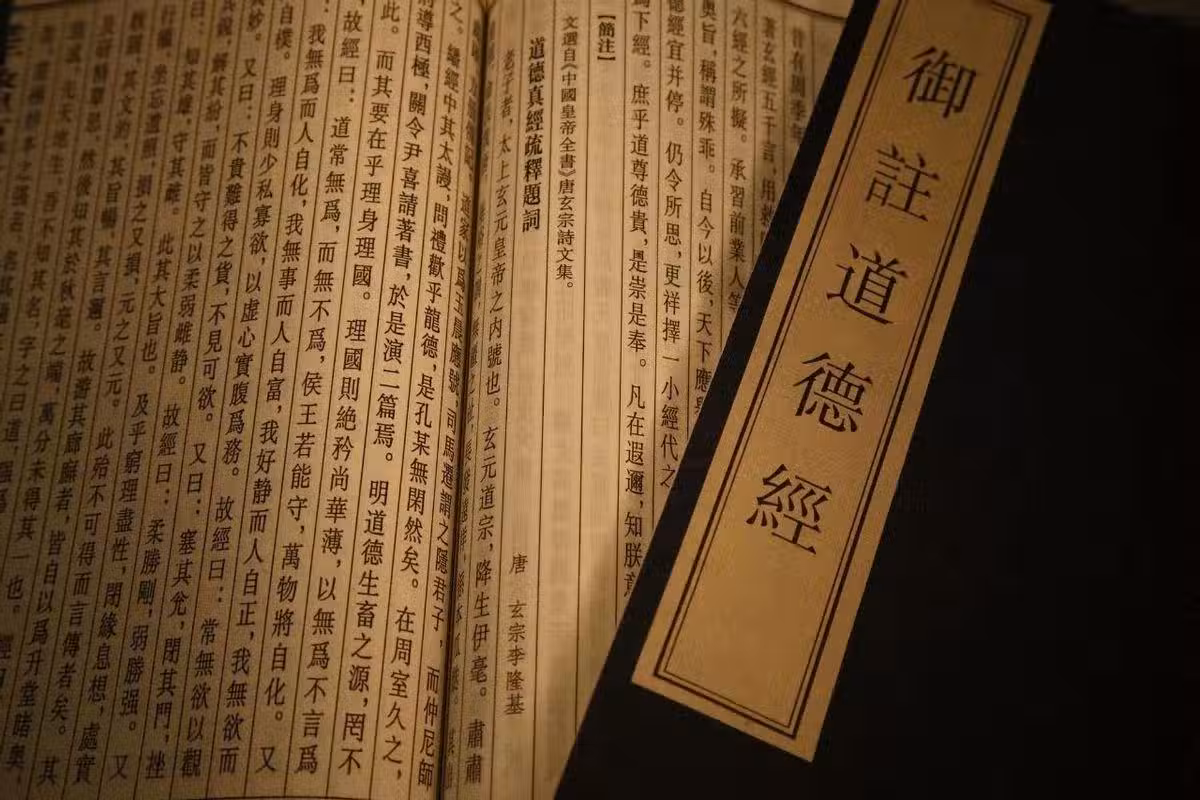 御註道德經
昔有周季年
著玄經五千言，用
六經之所擬。承習前業人等
奧旨，稱謂殊乖。自今以後，天下應
德經宜并停。仍令所思，更祥擇一小經代之
爲下經。庶乎道尊德貴，是崇是奉。凡在遐邇，知朕意
【簡注】
文選自《中國皇帝全書》唐玄宗詩文集。
道德真經疏釋題詞
唐 玄宗李隆基
老子者，太上玄元皇帝之内號也。玄元道宗，降生伊亳。肅肅
道家以爲玉晨應號，司馬遷謂之隱君子，而仲尼師
之。繙經中其太謾，問禮歡乎龍德，是孔某無閑然矣。在周室久之，
將導西極，關令尹喜請著書，於是演二篇焉。明道德生畜之源，罔不
此。而其要在乎理身理國。理國則絶矜尚華薄，以無爲不言爲
故經曰：道常無爲，而無不爲，侯王若能守，萬物將自化。又
：我無爲而人自化，我無事而人自富，我好静而人自正，我無欲而
自樸。理身則少私寡欲，以虛心實腹爲務。故經曰：常無欲以觀
其妙。又曰：不貴難得之貨，不見可欲。又曰：塞其兊，閉其門，挫
銳，解其紛，而皆守之以柔弱雌静。故經曰：柔勝剛，弱勝强。又
曰：知其雄，守其雌。此其大旨也。及乎窮理盡性，閉緣息想，處實
行權，坐忘遺照，損之又損，元之又元。此殆不可得而言傳者矣。其
其文約，其旨暢，其言邇。故游其廊廡者，皆自以爲升堂睹奥，
及研精覃思，然後知其於秋毫之端，萬分未得其一也。經
先天地生，吾不知其名，字之曰道，强爲